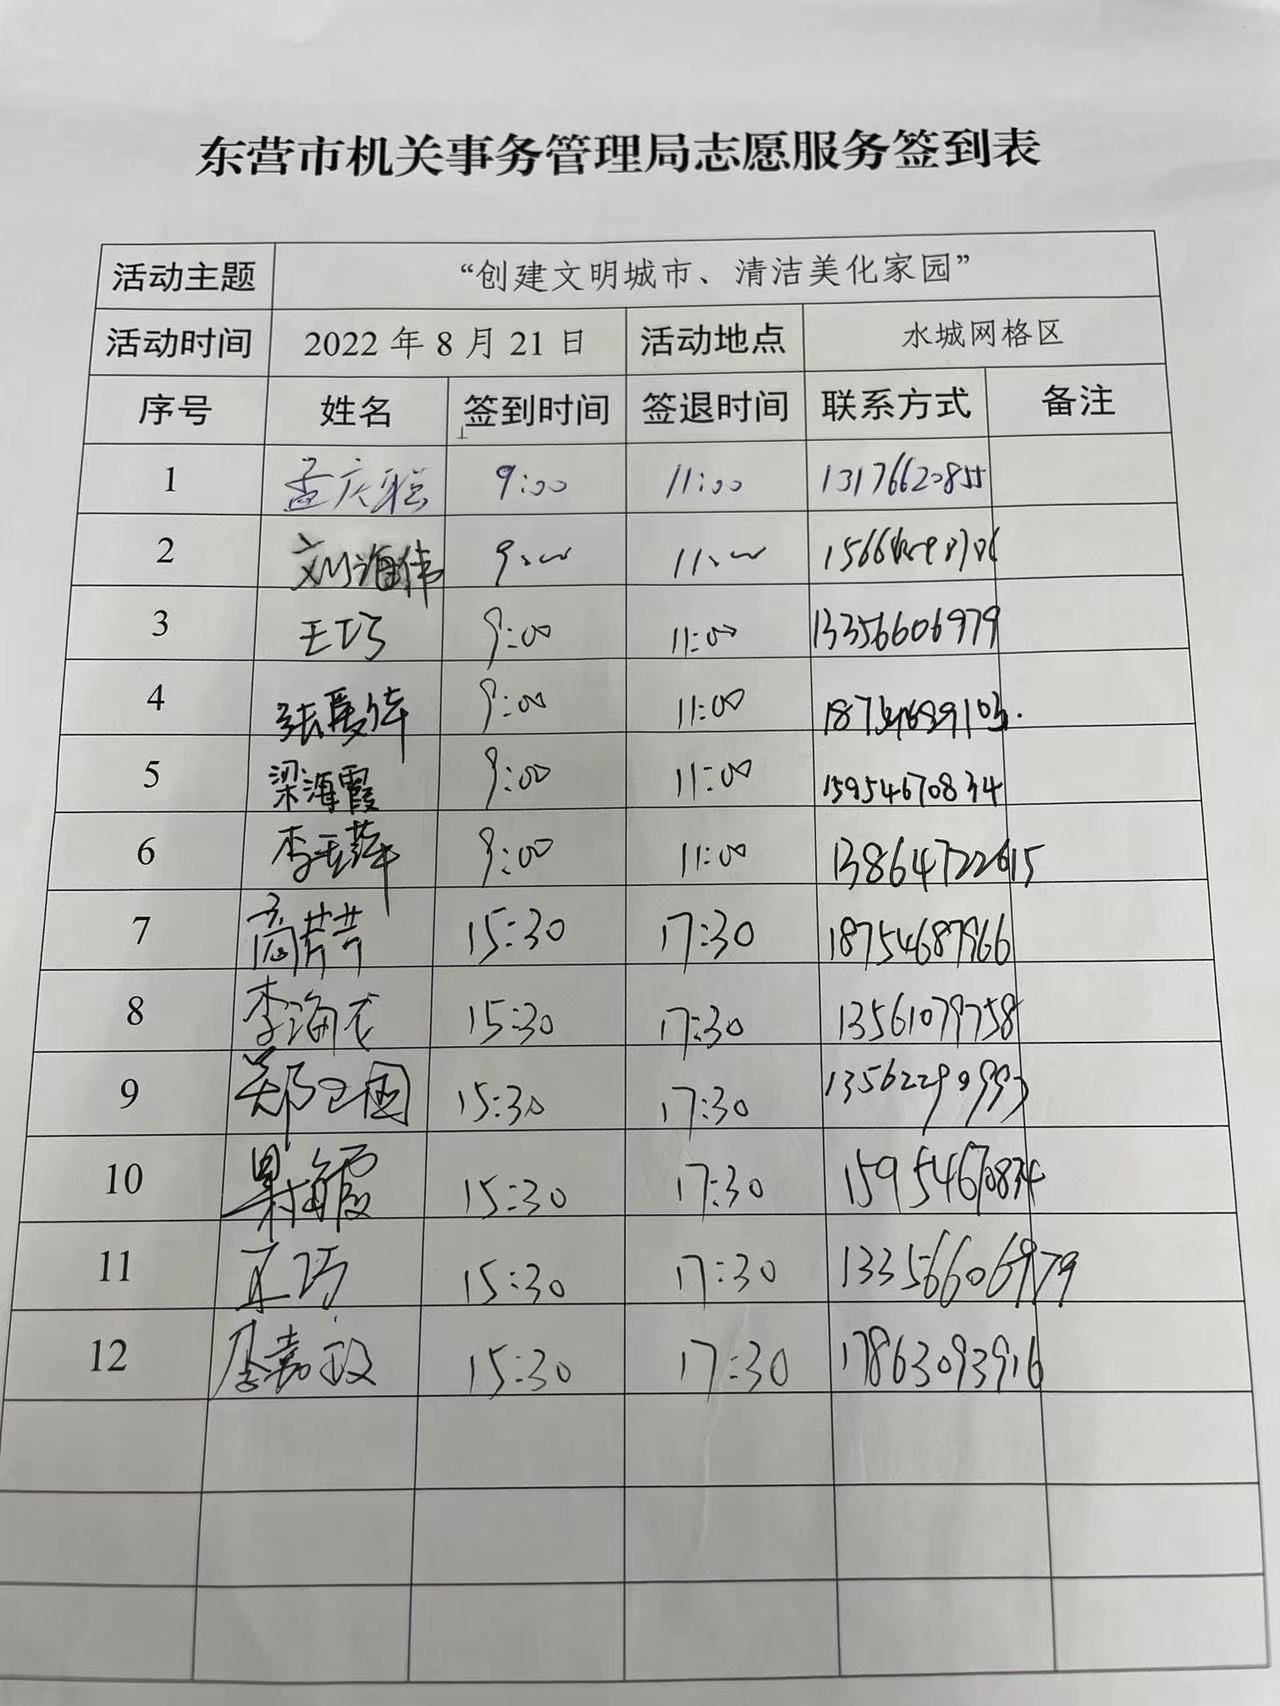 东营市机关事务管理局志愿服务签到表
活动主题 “创建文明城市、清洁美化家园”
活动时间 2022 年 8 月 21 日 活动地点 水城网格区
序号 姓名 签到时间 签退时间 联系方式 备注
1 孟庆聪 9:00 11:00 13176620855
2 刘海伟 9:00 11:00
3 王巧 9:00 11:00 13356606979
4 9:00 11:00
5 梁海霞 9:00 11:00 15954670834
6 李玉萍 9:00 11:00 13864722615
7 高芹芹 15:30 17:30 18754687966
8 李海龙 15:30 17:30 13561079758
9 郑卫国 15:30 17:30 13562290993
10 梁海霞 15:30 17:30 15954670834
11 王巧 15:30 17:30 13356606979
12 李嘉政 15:30 17:30 17863093916